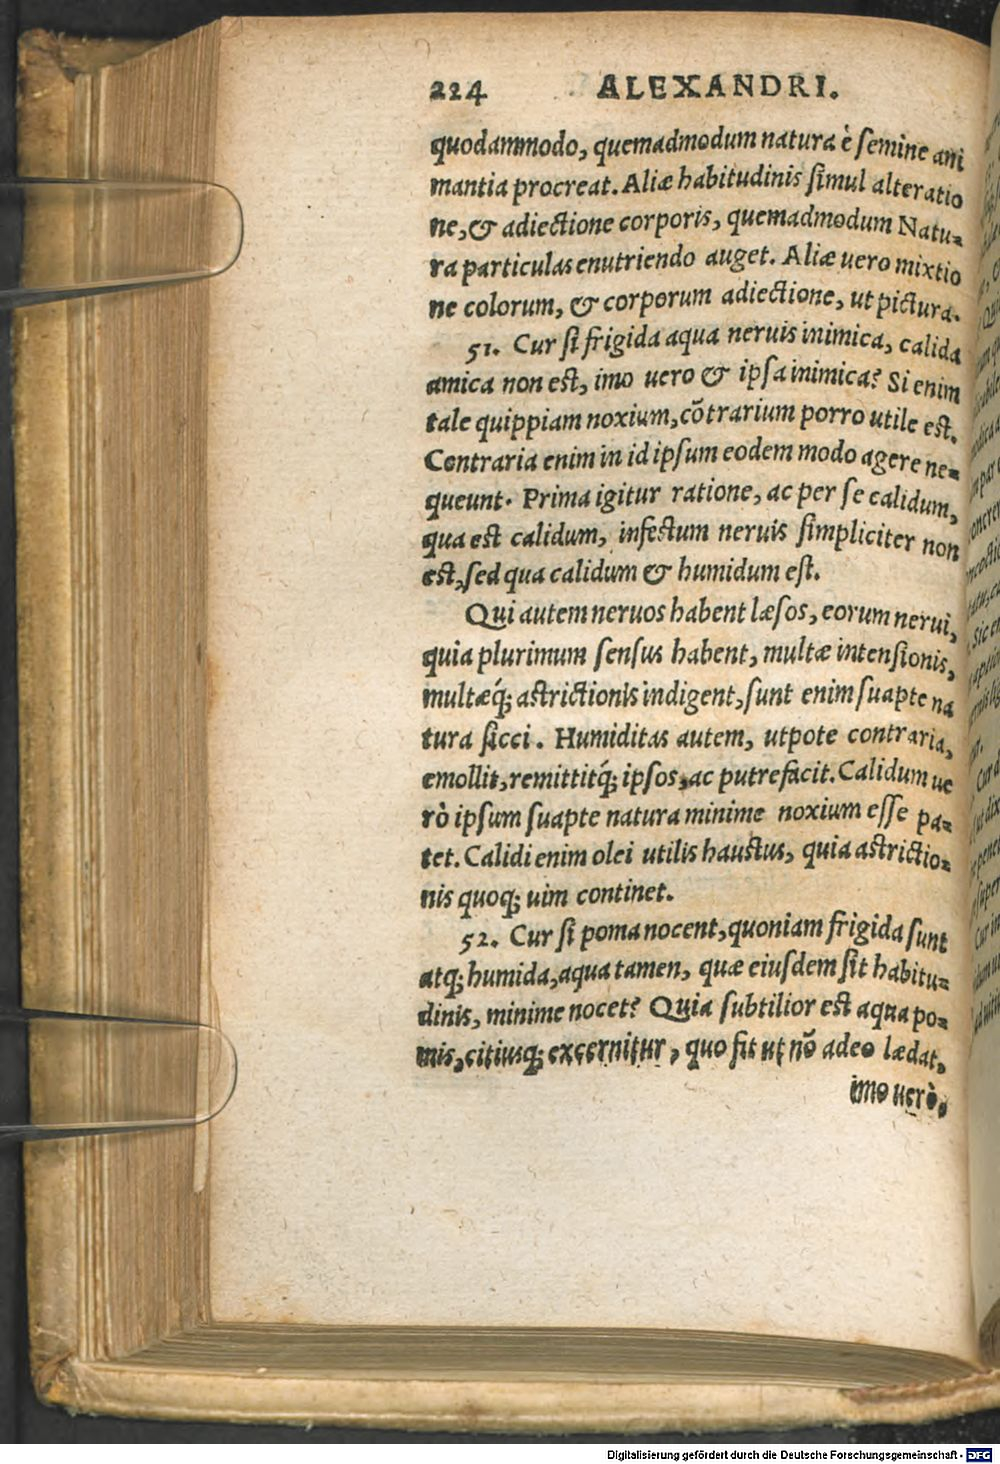 224 ALEXANDRI.
quodammodo, quemadmodum natura è ſemine ani
mantia procreat. Aliæ habitudinis ſimul alteratio
ne, & adiectione corporis, quemadmodum Natu-
ra particulas enutriendo auget. Aliæ uero mixtio
ne colorum, & corporum adiectione, ut pictura.
51. Cur ſi frigida aqua neruis inimica, calida
amica non eſt, imo uero & ipſa inimica? Si enim
tale quippiam noxium, cõtrarium porro utile eſt.
Contraria enim in id ipſum eodem modo agere ne-
queunt. Prima igitur ratione, ac per ſe calidum,
qua eſt calidum, infeſtum neruis ſimpliciter non
eſt, ſed qua calidum & humidum eſt.
Qui autem neruos habent læſos, eorum nerui,
quia plurimum ſenſus habent, multæ intenſionis,
multæq́; aſtrictionis indigent, ſunt enim ſuapte na
tura ſicci. Humiditas autem, utpote contraria,
emollit, remittitq́; ipſos, ac putrefacit. Calidum ue
rò ipſum ſuapte natura minime noxium eſſe pa-
tet. Calidi enim olei utilis hauſtus, quia aſtrictio-
nis quoq; uim continet.
52. Cur ſi poma nocent, quoniam frigida ſunt
atq; humida, aqua tamen, quæ eiuſdem ſit habitu-
dinis, minime nocet? Quia ſubtilior eſt aqua po-
mis, citiusq; excernitur, quo fit ut nõ adeo lædat,
imo uerò,
Digitalisierung gefördert durch die Deutsche Forschungsgemeinschaft - DFG